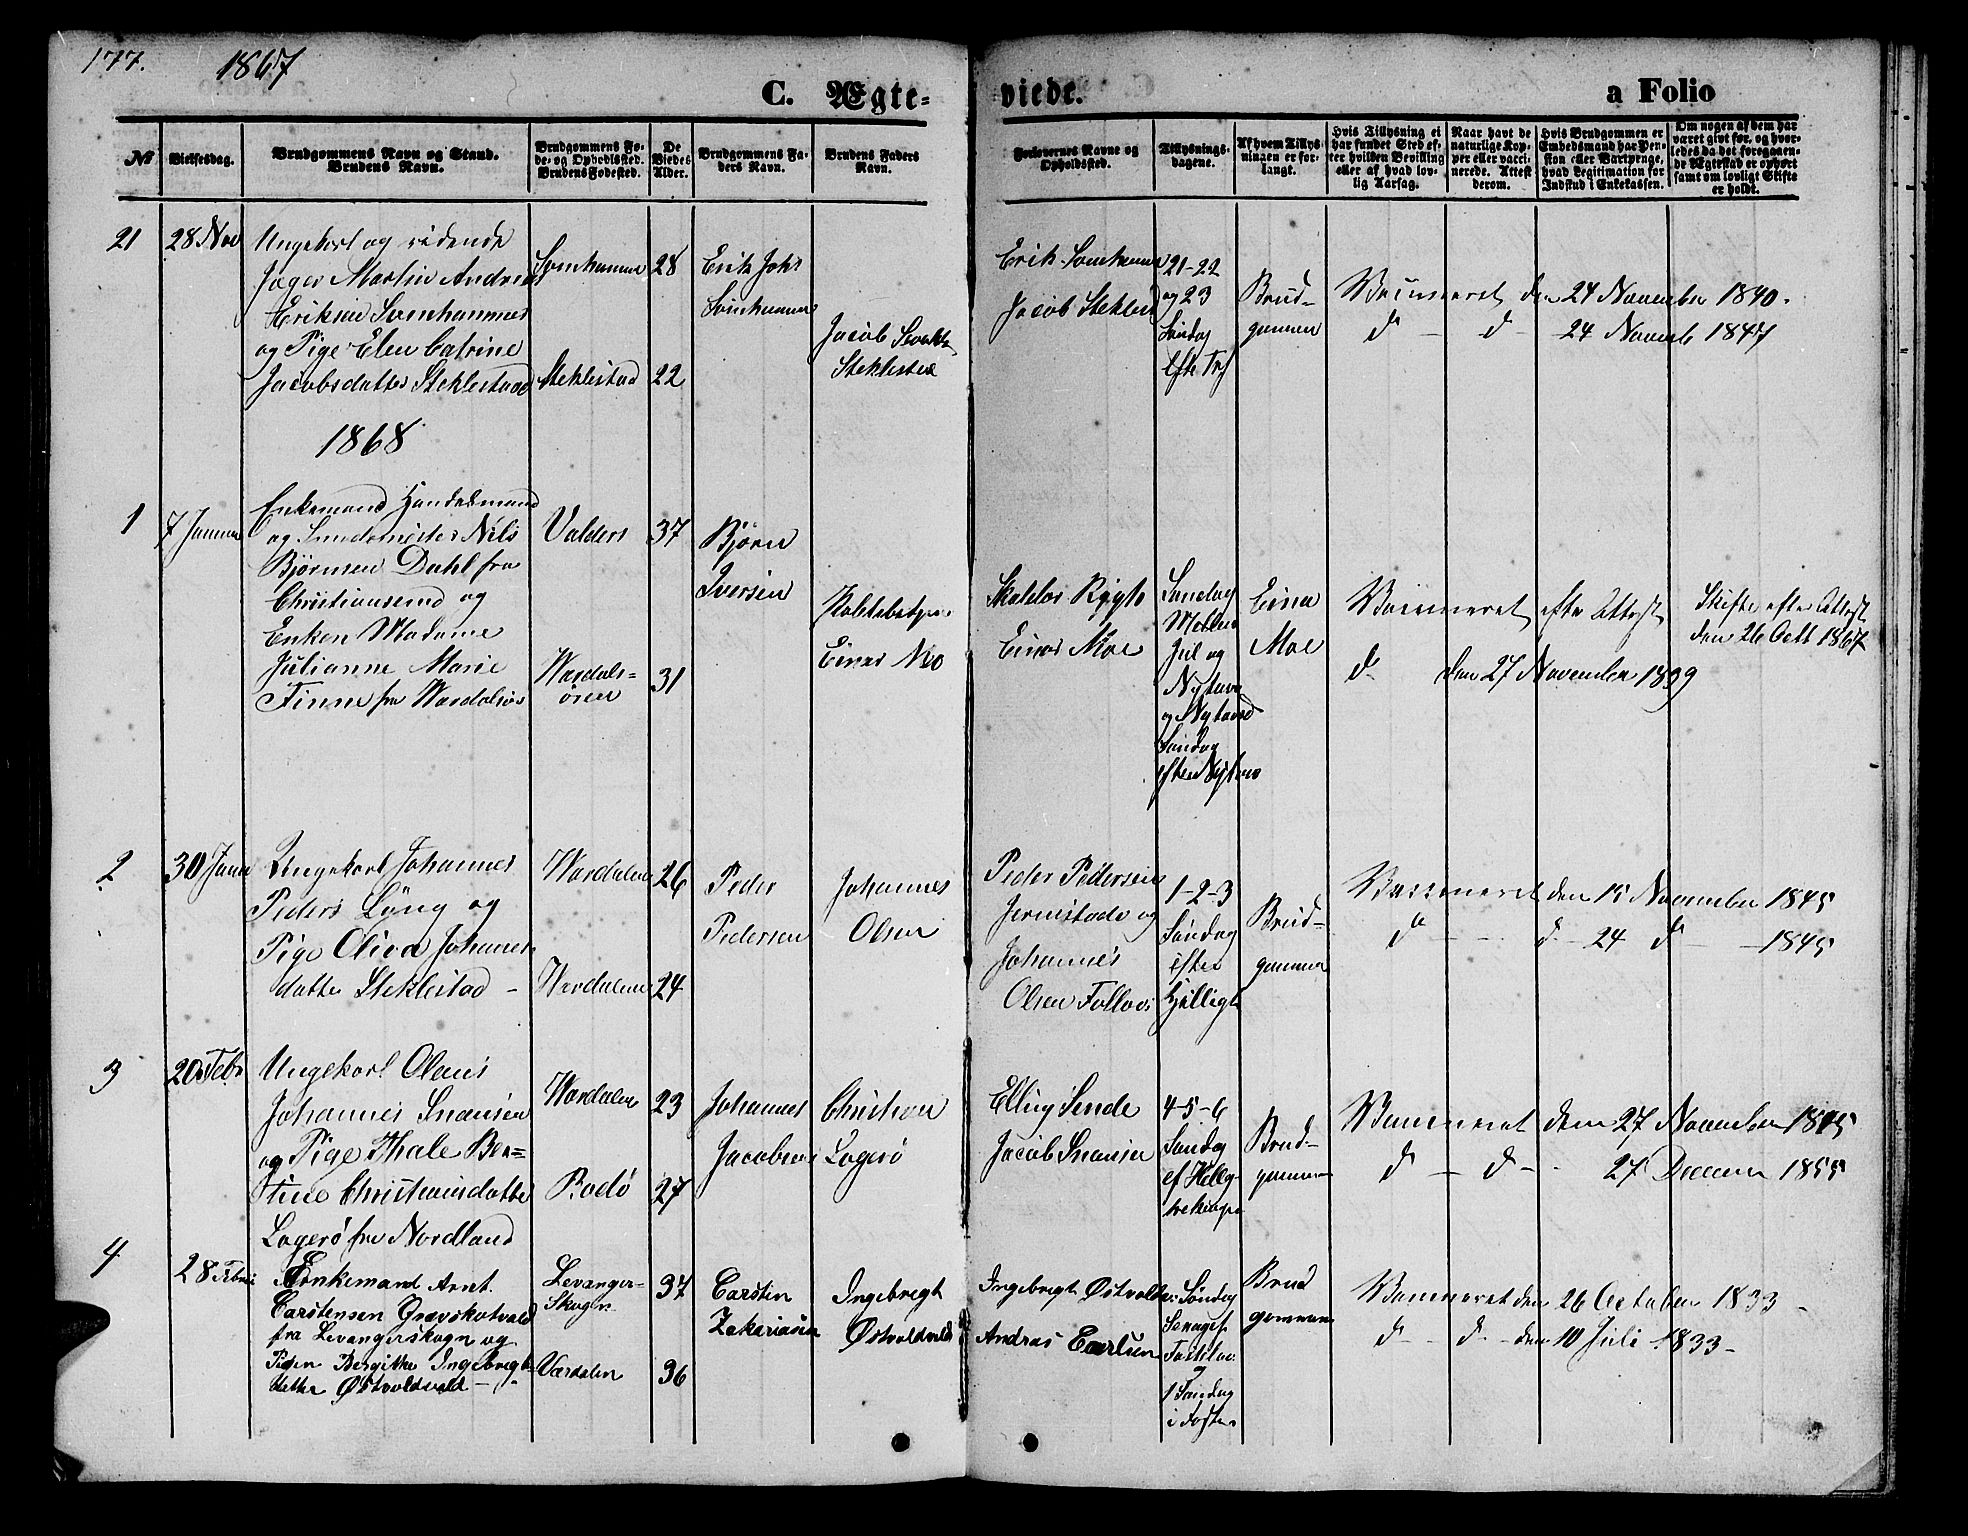 177.
1867
C. Ægte-
viede.
a Folio
№
Vielsesdag.
Brudgommens Navn og Stand.
Brudens Navn.
Brudgommens Fø-
de- og Opholdssted.
Brudens Fødested.
De
Viedes
Alder.
Brudgommens Fa-
ders Navn.
Brudens Faders
Navn.
Forlovernes Navne og
Opholdssted.
Tillysnings-
dagene.
Af hvem Tillys-
ningen er for-
langt.
Hvis Tillysning ei
har fundet Sted ef-
ter hvilken Bevilling
eller af hvad lov-
lig Aarsag.
Naar havt de
naturlige Kop-
per eller vacci-
nerede. Attest
derom.
Hvis Brudgommen er
Embedsmand har Pen-
sion eller Vartpenge,
hvad Legitimation for
Indskud i Enkekassen.
Om nogen af dem har
været givt før, og hvor-
ledes da det foregaaen-
de Ægteskab er ophørt
samt om lovligt Skifte
er holdt.
21
28 Nov
Ungekarl og ridende
Jæger Martin Andreas
Eriksen
og Pige Elen Catrine
Jacobsdatter Steklestad
Steklestad
28
22
Erik Johs
Jacob
Steklestad
Erik
Jacob Steklestad
21-22
og 23
Søndag
efter Trf
Brud-
gommen
Vaccineret den 24 November 1840.
d - d - 24 Novemb 1847
1868
1
7 Januar
Enkemand Handelsmand
og Nils
Bjørnsen Dahl fra
Christiansund og
Enken Madame
Julianne Marie
Finne fra Værdalsør
Valders
Værdals-
øren
37
31
Bjørn
Iversen
Einar Mo
Rygh
Einar Moe
Søndag
Mellem
Jul og
Nytaar
og Nytaarsd
Søndag
efter Nytaar
Einar
Moe
Vaccineret efter Attest
d den 27 November 1839
Skifte efter Attest
den 26 Octb 1867
2
30 Janu
Ungekarl Johannes
Peders Lyng og
Pige Oliva Johannes
datter Steklestad -
Værdalen
Værdalen
26
24
Peder
Pedersen
Johannes
Olsen
Peder Pedersen
og
Johannes
Olsen
1-2-3
Søndag
efter
Helligt
Brud-
gommen
Vaccineret den 15 November 1845
d - d - 24 d - 1845
3
20 Febr
Ungekarl Olaus
Johannes Snausen
og Pige Thale Ber-
tine Christiansdatter
Lagerø fra Nordland
Værdalen
Rodø
23
27
Johannes
Jacobsen
Christian
Lagerø
Elling Sende
Jacob Snausen
4-5-6
Søndag
ef Hellig-
trekonger
Brud-
gommen
Vaccineret den 27 November 1845
d - d - 27 Decemr 1855
4
28 Febru
Enkemand Arnt
Carstensen Gravskotvald
fra Levangerskogn og
Pigen Bergitha Ingebregt-
datter Østvoldvald
Levanger-
Skogn.
Værdalen
37
36
Carsten
Zakariasen
Ingebregt
Østvoldvald
Ingebregt Østvoldv.
Andreas Carlsen
Søndag
Fastelav
og
1 Søndag
i Fasten
Brud
gommen
Vaccineret den 26 October 1833 -
d - d - den 10 Juli 1833 -